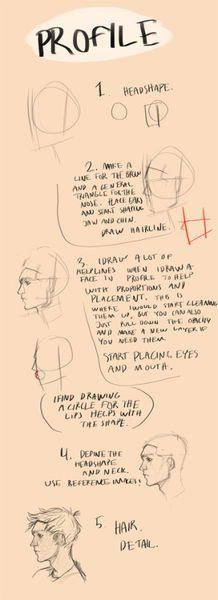 PROFILE
1. HEADSHAPE.
2. MAKE A
LINE FOR THE BROW
AND A GENERAL
TRIANGLE FOR THE
NOSE. PLACE EARS
AND START SHAPING
JAW AND CHIN.
DRAW HAIRLINE.
3. I DRAW A LOT OF
HELPLINES WHEN I DRAW A
FACE IN PROFILE TO HELP
WITH PROPORTIONS AND
PLACEMENT. THIS IS
WHERE I WOULD START CLEANING
THEM UP, BUT YOU CAN ALSO
JUST PULL DOWN THE OPACITY
AND MAKE A NEW LAYER IF
YOU NEED THEM.
START PLACING EYES
AND MOUTH.
I FIND DRAWING
A CIRCLE FOR THE
LIPS HELPS WITH
THE SHAPE.
4. DEFINE THE
HEADSHAPE
AND NECK.
USE REFERENCE IMAGES!
5. HAIR.
DETAIL.